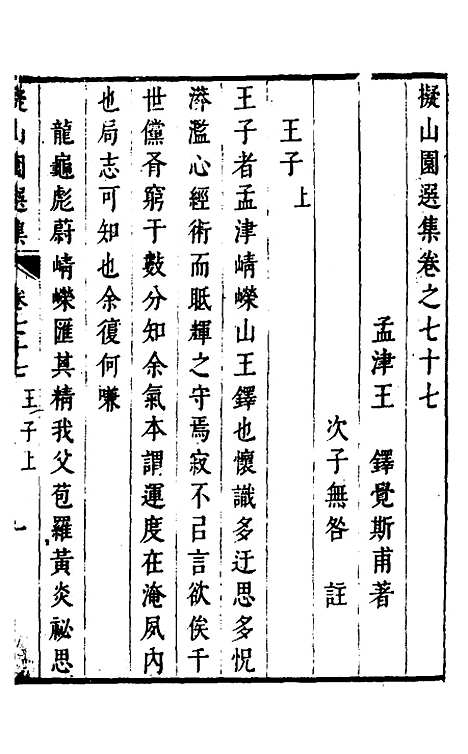 擬山園選集卷之七十七
孟津王　鐸覺斯甫著
次子無咎　註
王子上
王子者孟津崝嶸山王鐸也懷識多迂思多怳
漭濫心經術而眂輝之守焉寂不㠯言欲俟千
世儻胥窮于數分知余氣本謂運度在淹夙內
也局志可知也余復何嗛
龍龜彪蔚崝嶸匯其精我父苞羅黃炎祕思
擬山園選集
卷七十七
王子上